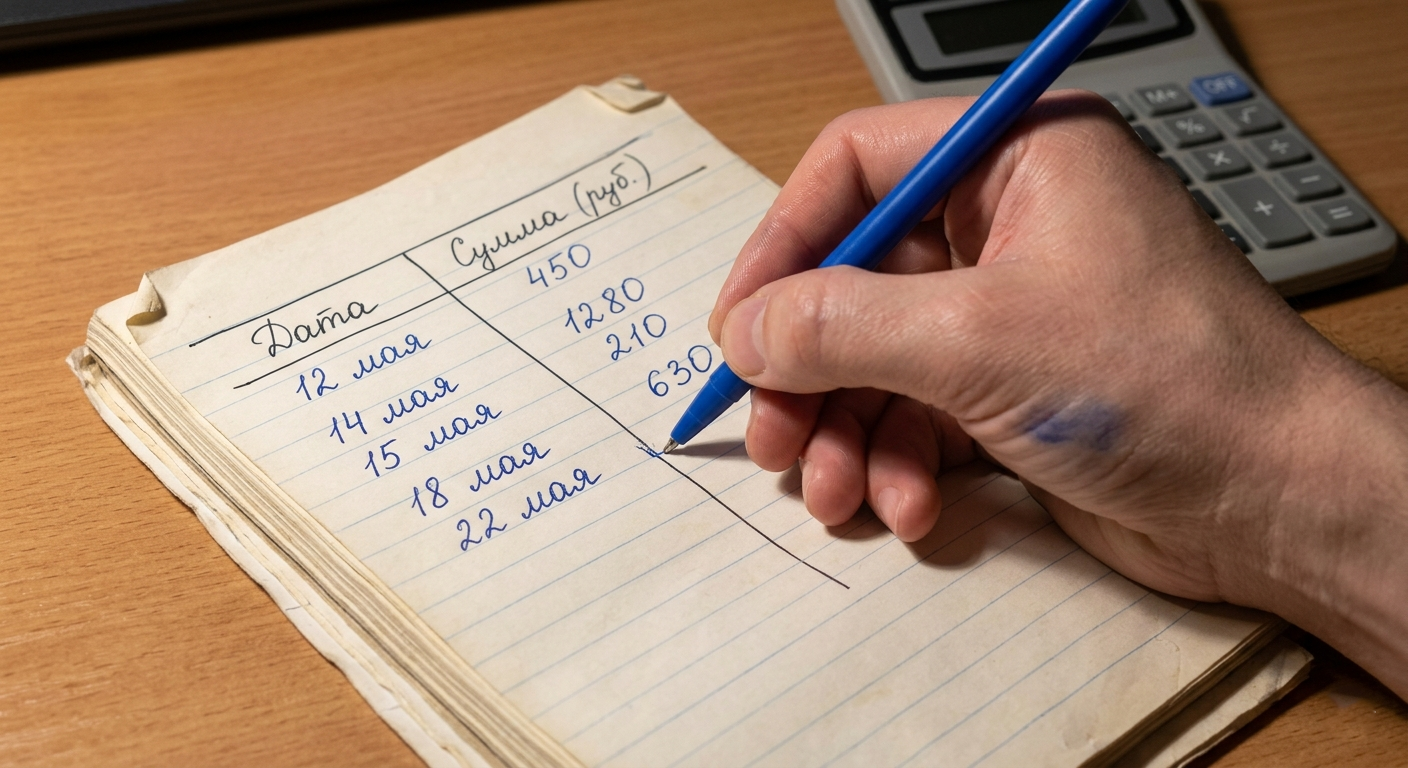 Дата Сумма (руб.)
12 мая 450
14 мая 1280
15 мая 210
18 мая 630
22 мая
M+ OFF
% √
× ÷
+ −
=